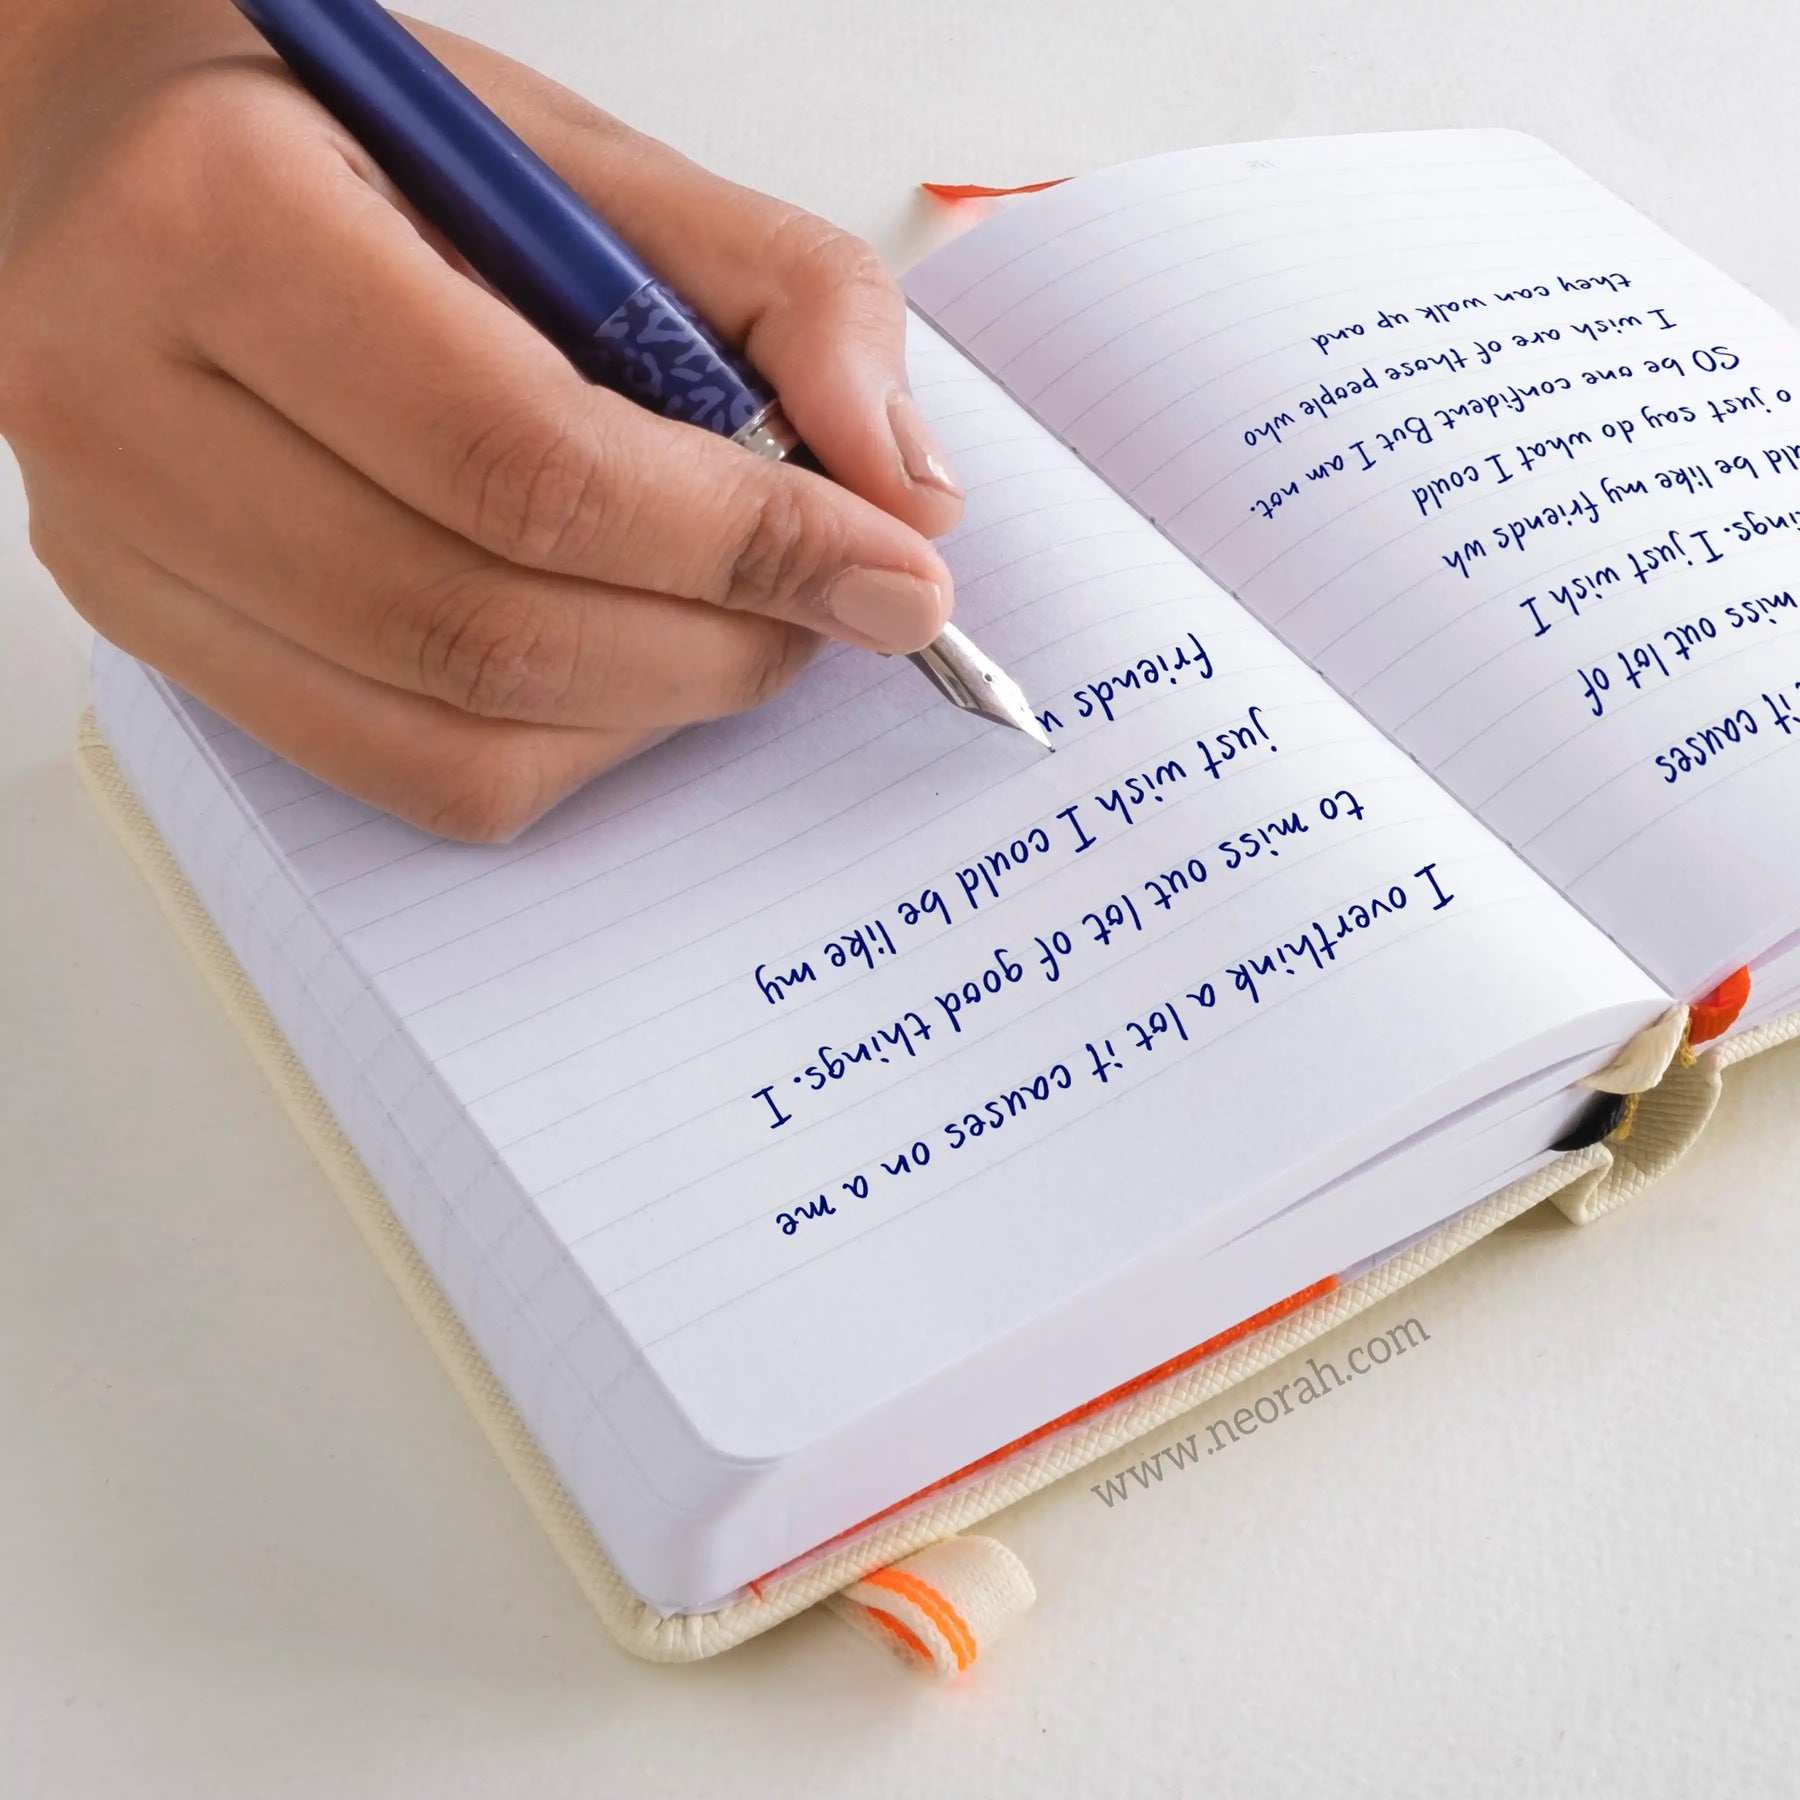 it causes
miss out lot of
I just wish I
be like my friends
just say do what I could
SO be one confident But I am not.
I wish are of those people who
they can walk up and
I overthink a lot it causes on a me
to miss out lot of good things. I
just wish I could be like my
friends
www.neorah.com